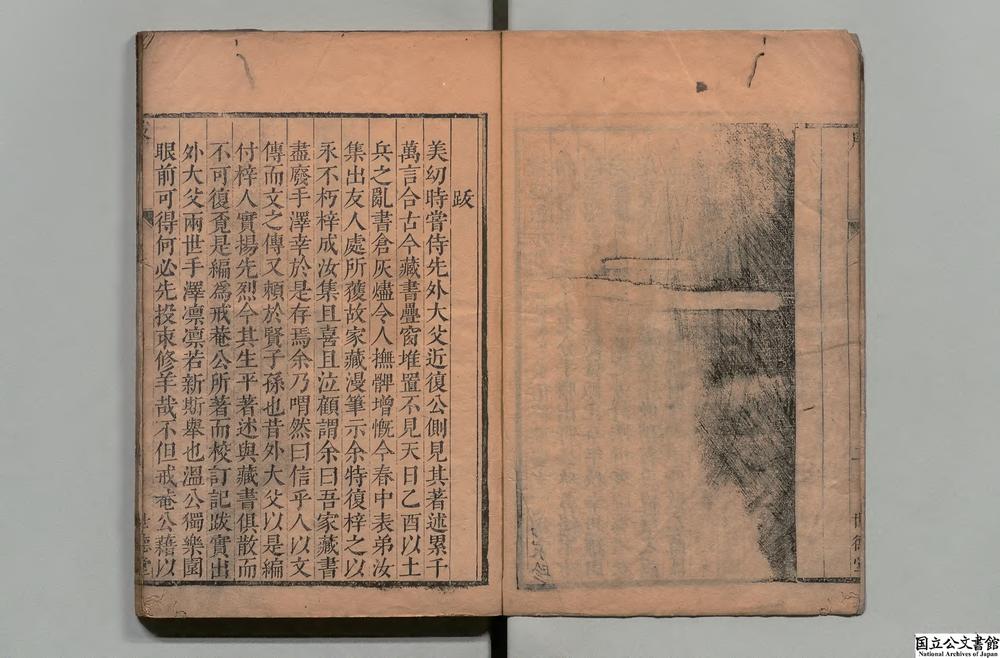 跋
美幼時嘗侍先外大父近復公側見其著述累千
萬言合古今藏書疊窗堆置不見天日乙酉以土
兵之亂書倉灰燼令人撫髀增慨今春中表弟汝
集出友人處所獲故家藏漫筆示余特復梓之以
永不朽梓成汝集且喜且泣顧謂余曰吾家藏書
盡廢手澤幸於是存焉余乃喟然曰信乎人以文
傳而文之傳又頼於賢子孫也昔外大父以是編
付梓人實揚先烈今其生平著述與藏書俱散而
不可復覔是編爲戒菴公所著而校訂記跋實出
外大父兩世手澤凛凛若新斯舉也溫公獨樂園
眼前可得何必先投束修羊哉不但戒菴公藉以
世德堂
国立公文書館
National Archives of Japan